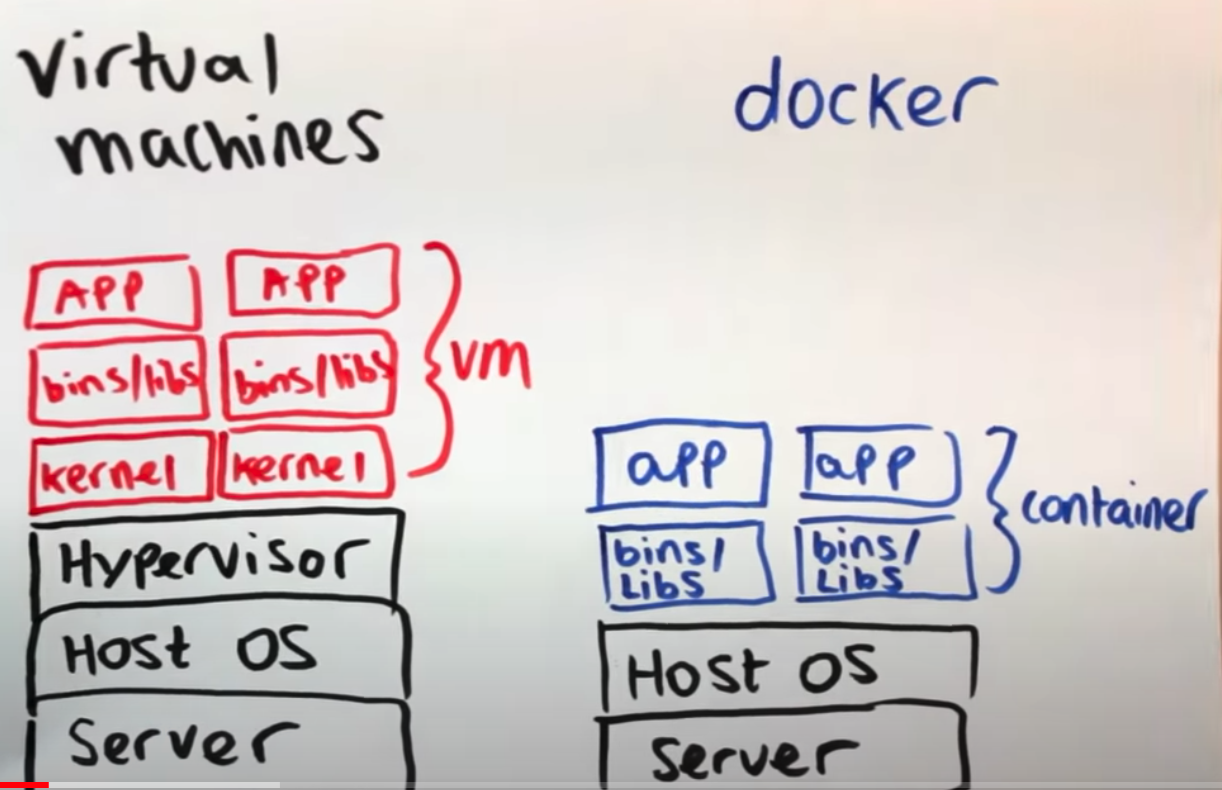 Virtual
machines
docker
APP
APP
bins/libs
bins/libs
kernel
kernel
vm
Hypervisor
Host OS
Server
app
app
bins/
Libs
bins/
Libs
container
Host OS
Server